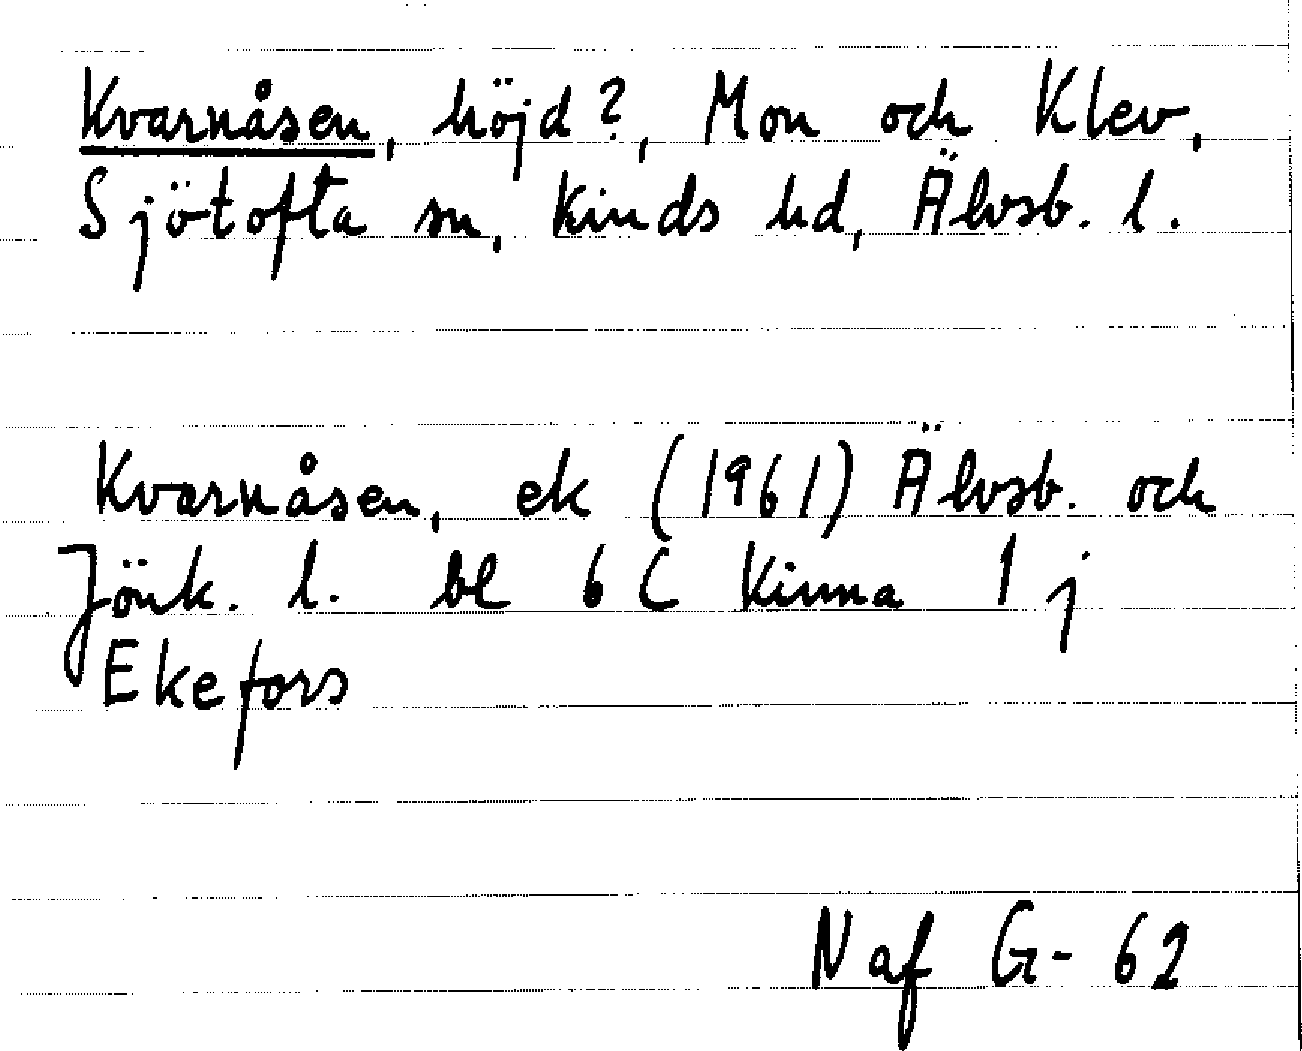 Kvarnåsen, höjd?, Mon och Klev,
Sjötofta sn, Kinds hd, Älvsb. l.
Kvarnåsen, ek (1961) Älvsb. och
Jönk. l. bl 6 C Kinna 1 j
Ekefors
Naf G-62